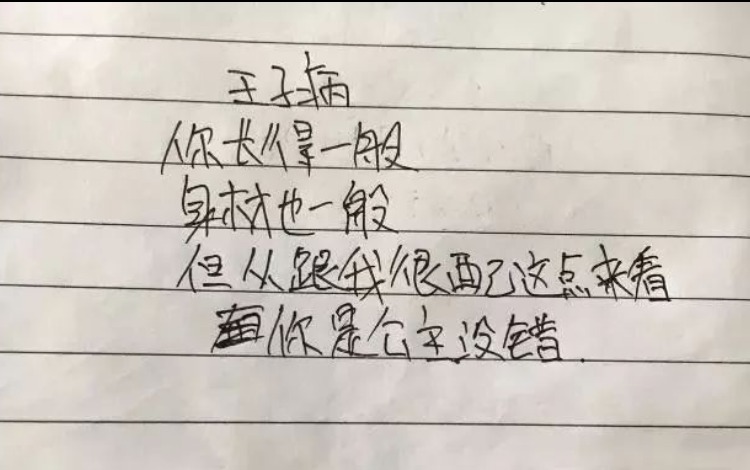 王子病
你长得一般
身材也一般
但从跟我很配这点来看
你是公主没错.